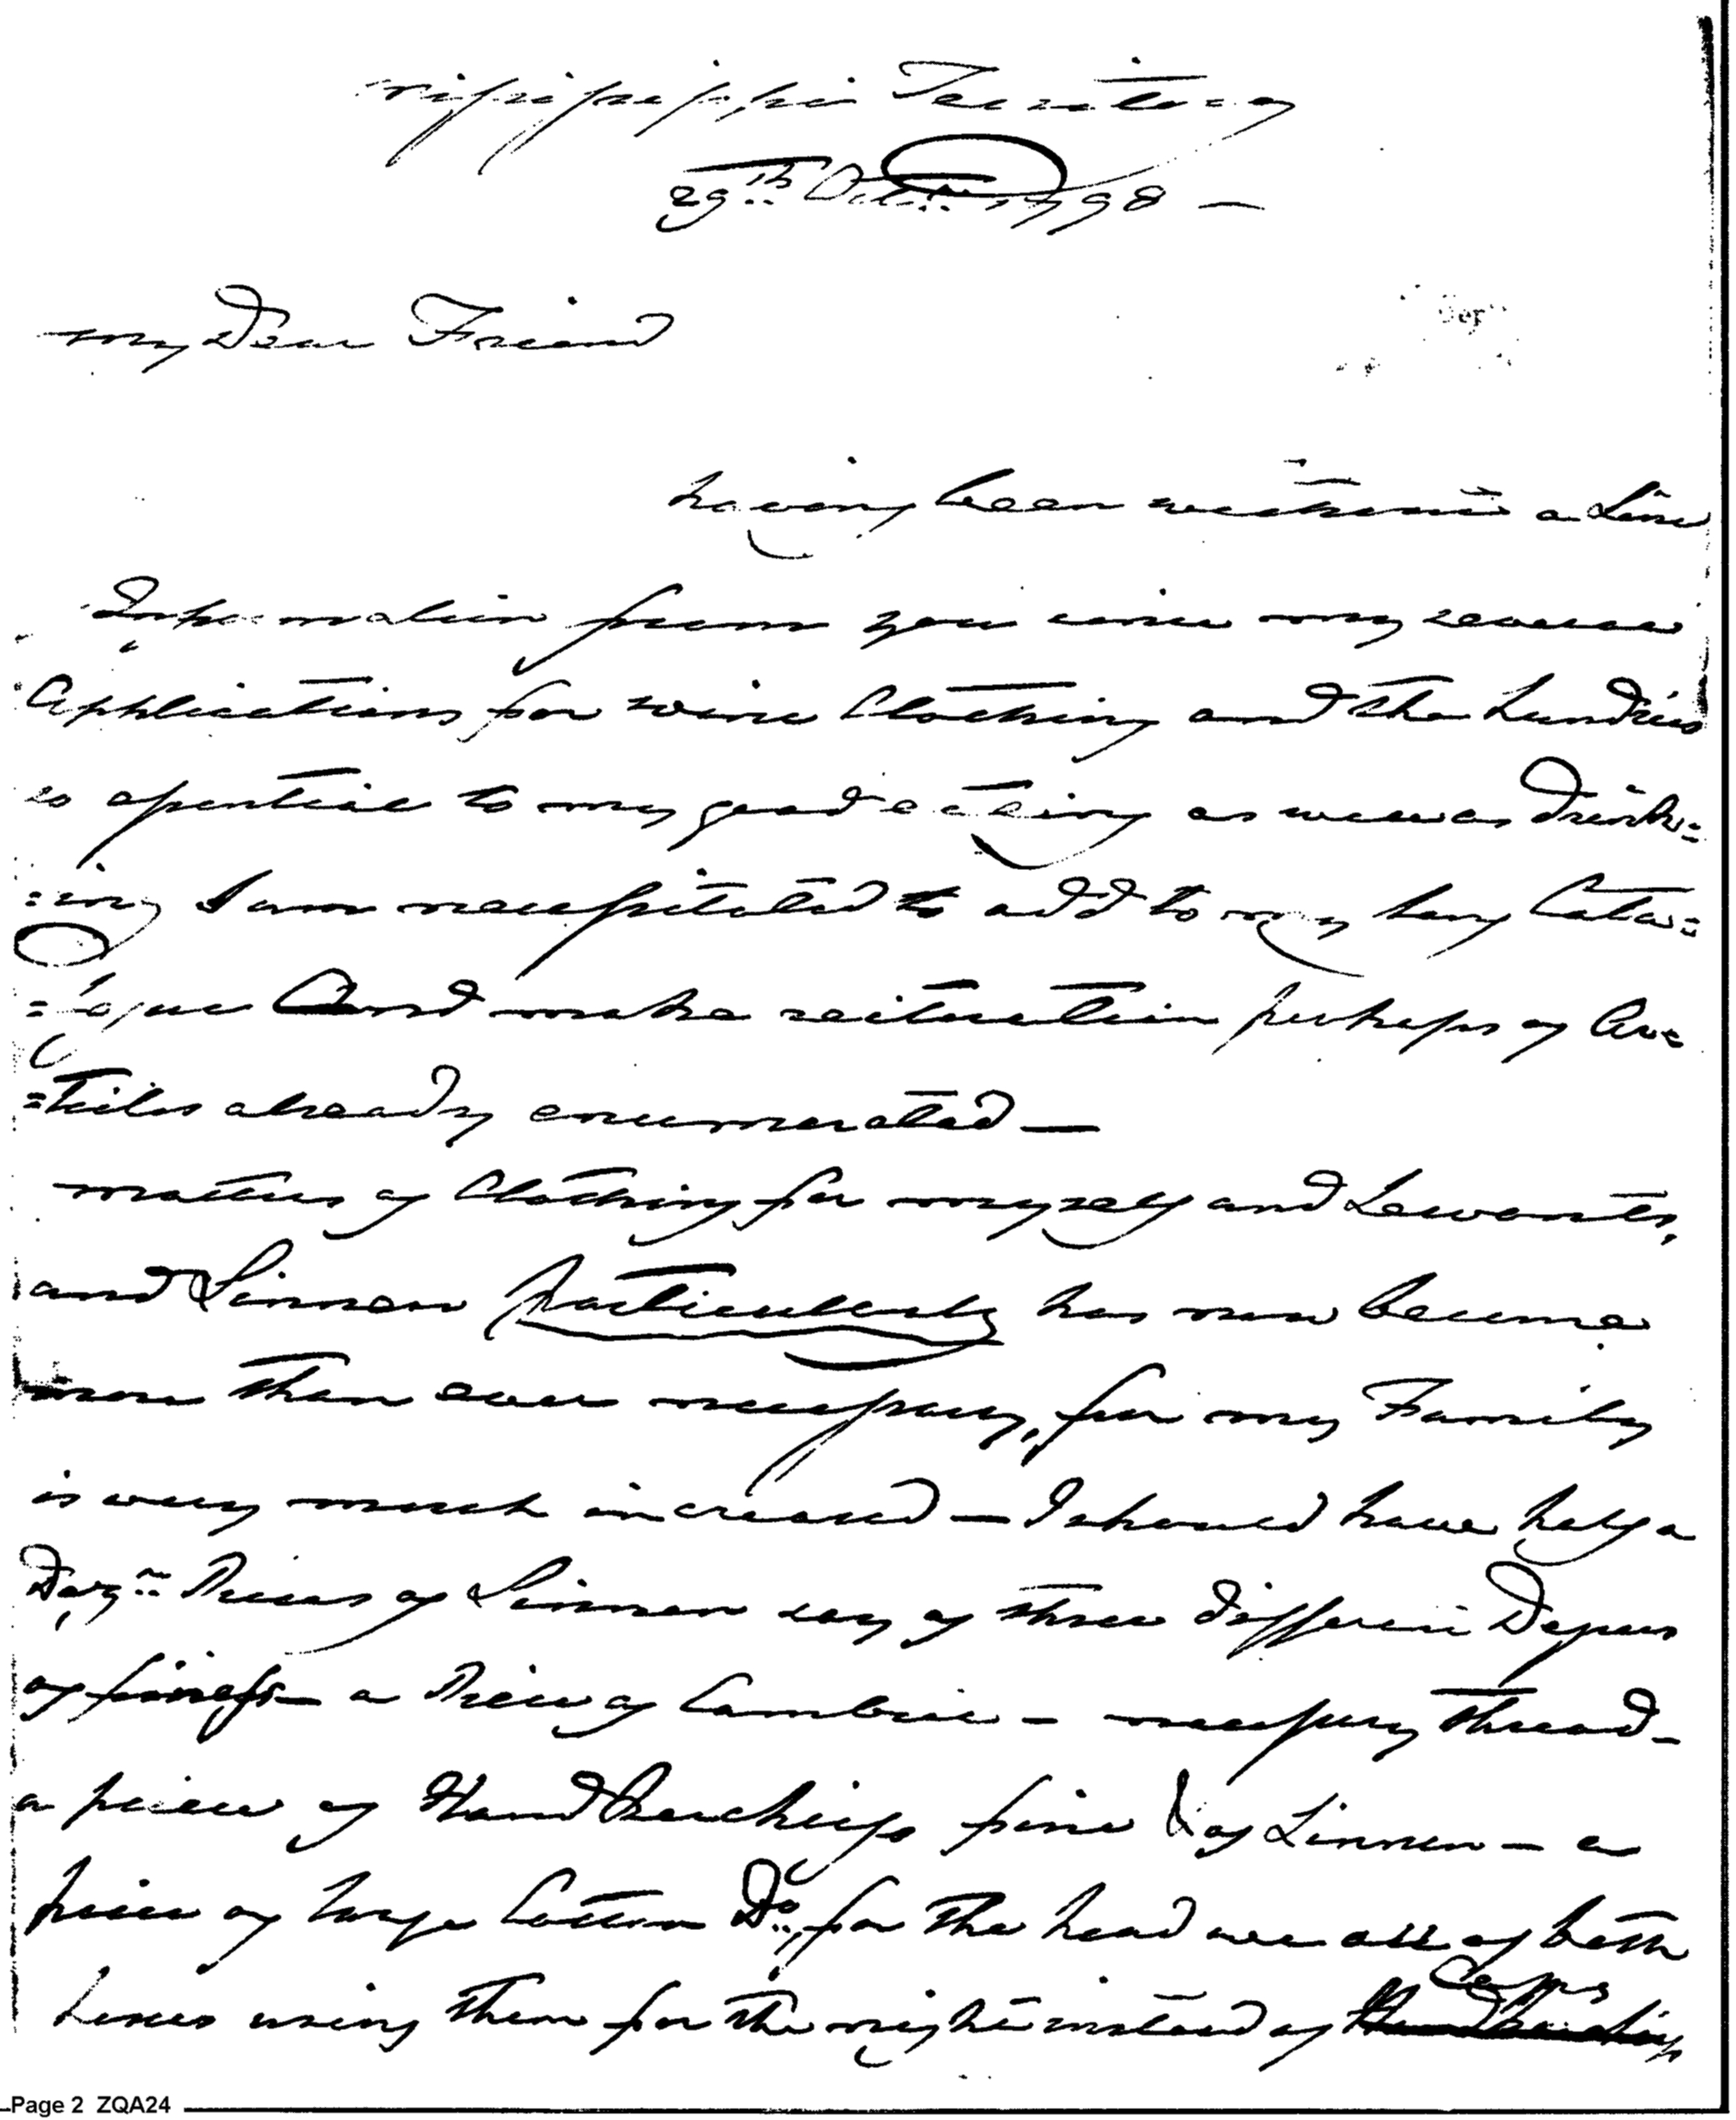 Missisippi Territory
29th Octr. 1798 —
my Dear Friend
having been without a Line
Information from you since my several
Applications for wine Clothing and the Sundries
so essential to my good eating as well as drink=
=ing I am necessitated to add to my long Cata=
=logue And make reiteration perhaps of Ar=
=ticles already enumerated —
matters of Clothing for myself and Servants,
and Linnen Particularly has now become
more than ever necessary, for my Family
is very much increased — I should have half a
Dozn. Pieces of Linnen say of three different Degrees
of finess — a Piece of Cambric — necessary thread —
a piece of Handkerchiefs fine & of Linnen — a
piece of large Cotton Do. for the head we all of both
Sexes using them for the night instead of Caps
Page 2 ZQA24